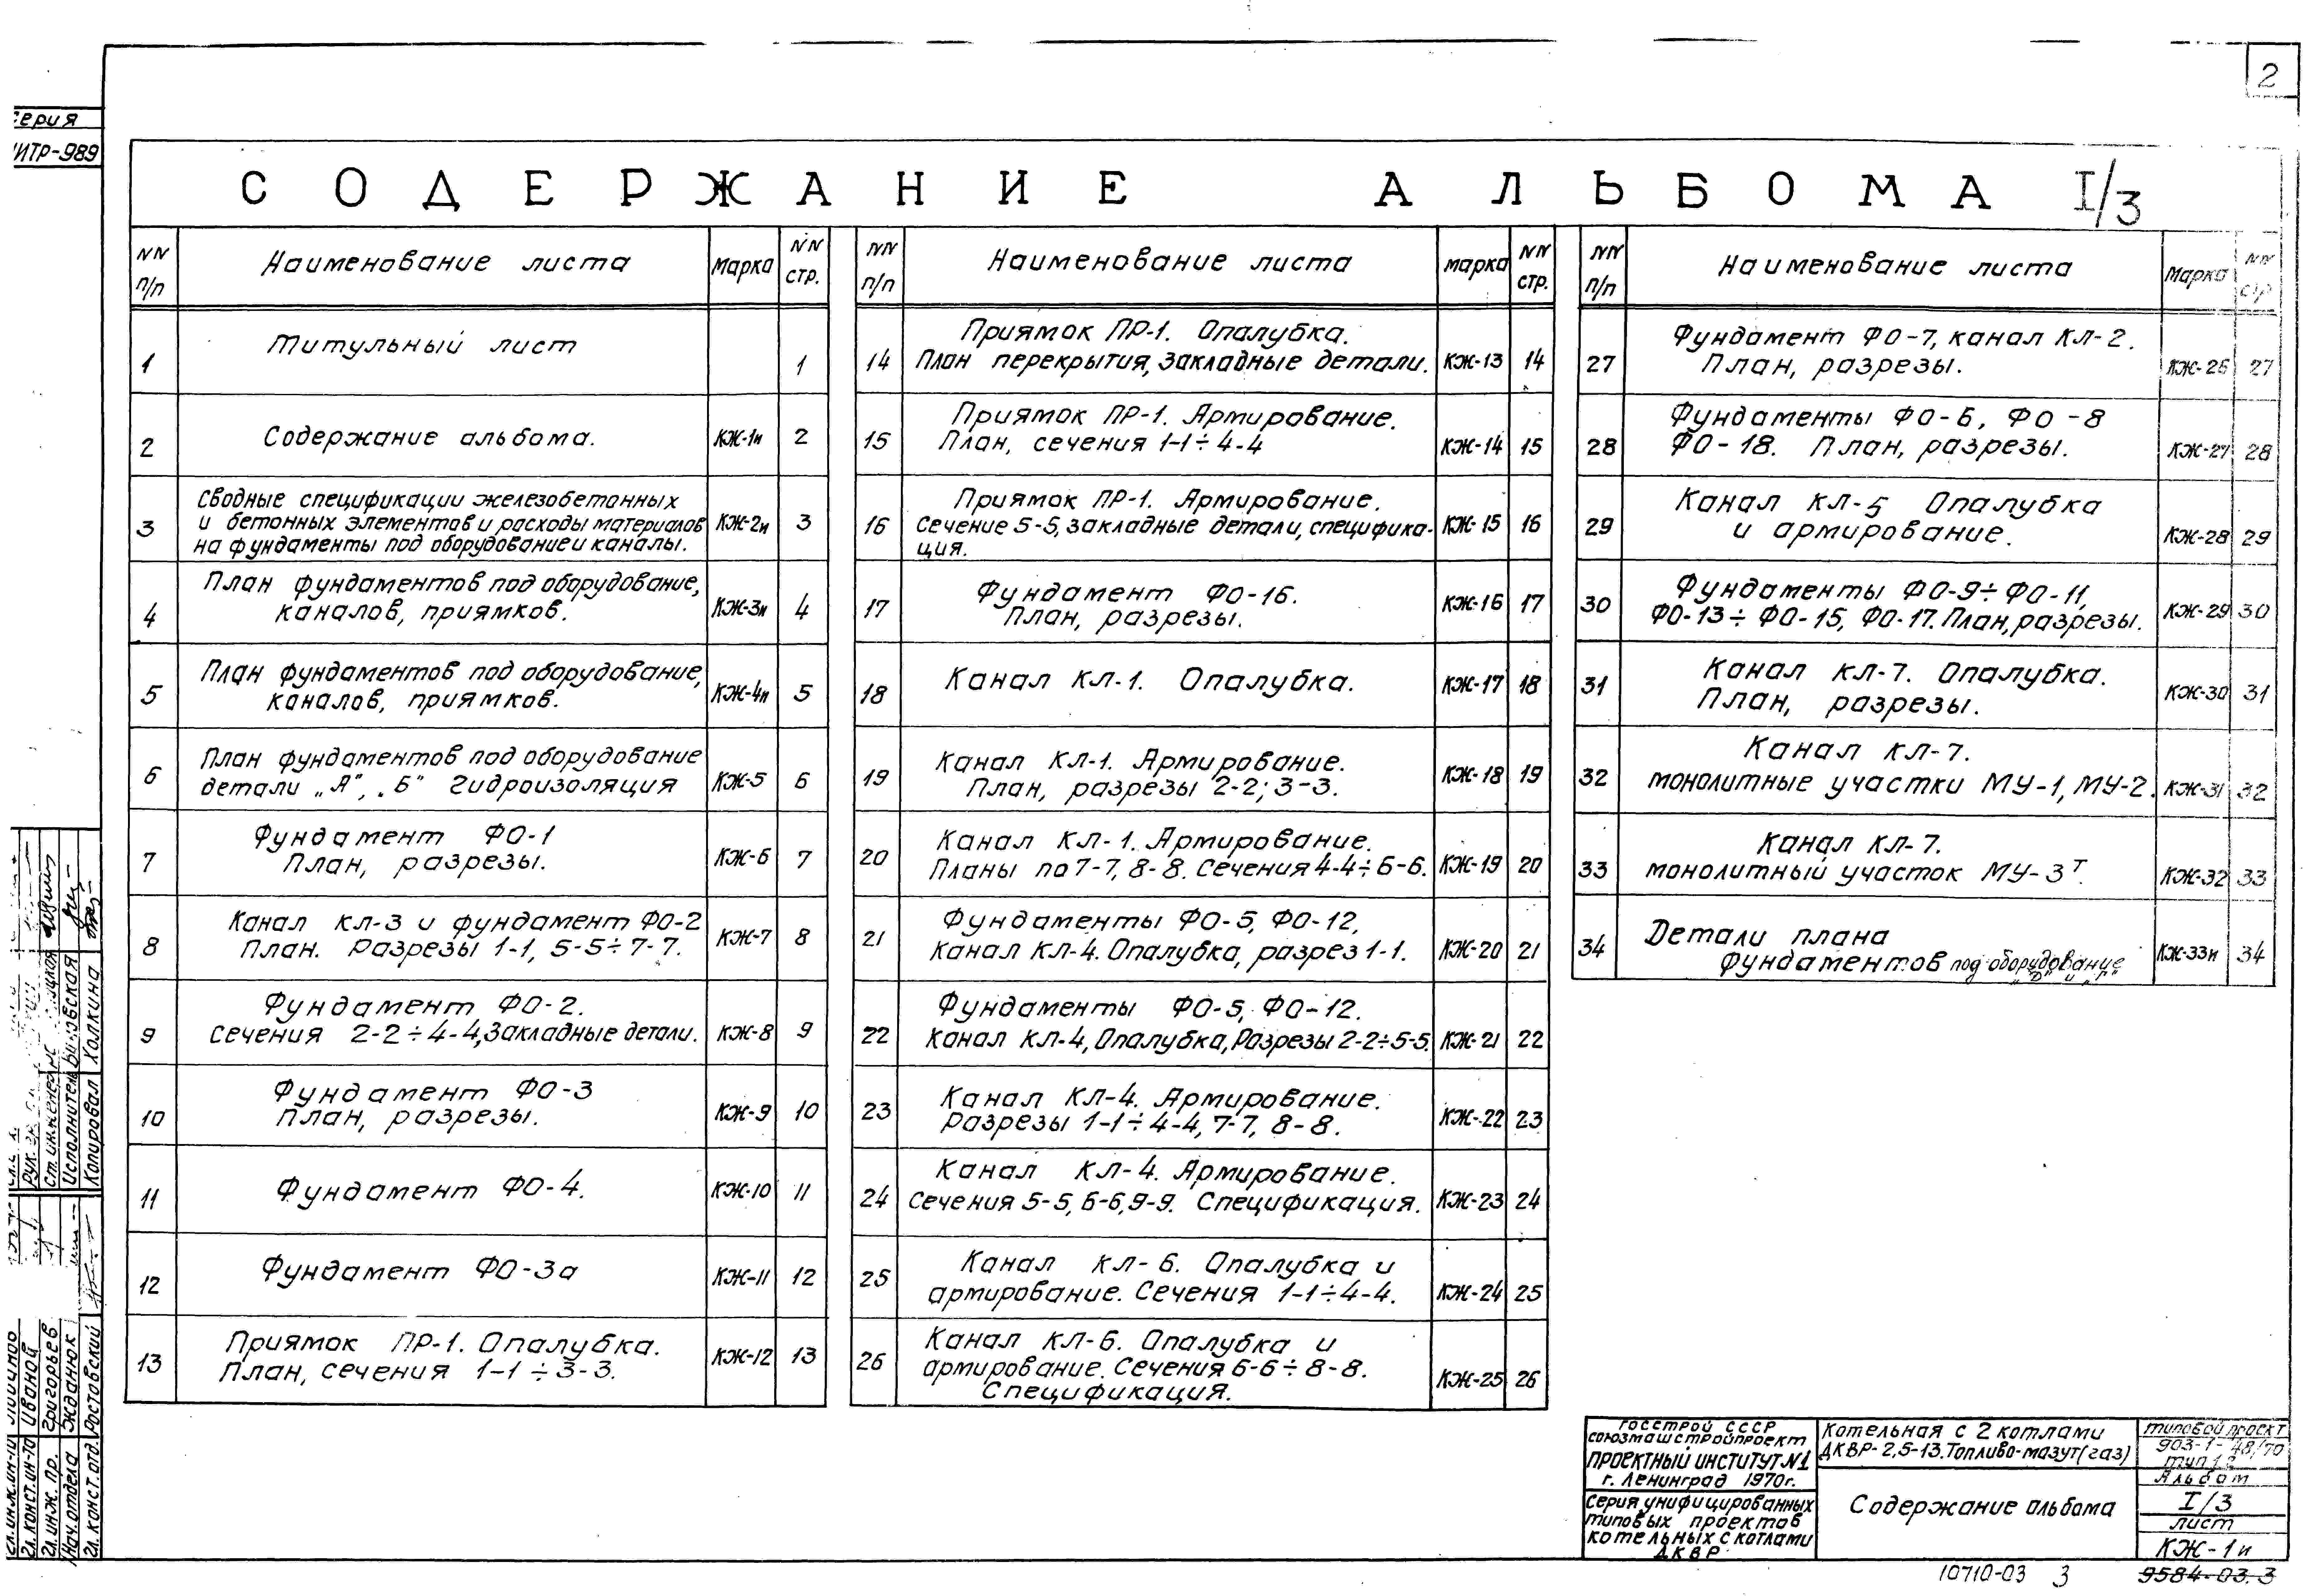 2
Серия
ИТР-989
СОДЕРЖАНИЕ АЛЬБОМА I/3
NN п/п Наименование листа Марка NN стр.
1 Титульный лист 1
2 Содержание альбома. КЖ-1и 2
3 Сводные спецификации железобетонных
и бетонных элементов и расходы материалов КЖ-2и 3
на фундаменты под оборудование и каналы.
4 План фундаментов под оборудование,
каналов, приямков. КЖ-3и 4
5 План фундаментов под оборудование,
каналов, приямков. КЖ-4и 5
6 План фундаментов под оборудование
детали „А", „Б" Гидроизоляция КЖ-5 6
7 Фундамент ФО-1
План, разрезы. КЖ-6 7
8 Канал КЛ-3 и фундамент ФО-2
План. Разрезы 1-1, 5-5÷7-7. КЖ-7 8
9 Фундамент ФО-2.
Сечения 2-2÷4-4, Закладные детали. КЖ-8 9
10 Фундамент ФО-3
План, разрезы. КЖ-9 10
11 Фундамент ФО-4. КЖ-10 11
12 Фундамент ФО-3а КЖ-11 12
13 Приямок ПР-1. Опалубка.
План, сечения 1-1÷3-3. КЖ-12 13
NN п/п Наименование листа марка NN стр.
14 Приямок ПР-1. Опалубка.
План перекрытия, закладные детали. КЖ-13 14
15 Приямок ПР-1. Армирование.
План, сечения 1-1÷4-4 КЖ-14 15
16 Приямок ПР-1. Армирование.
Сечение 5-5, закладные детали, специфика-
ция. КЖ-15 16
17 Фундамент ФО-16.
План, разрезы. КЖ-16 17
18 Канал КЛ-1. Опалубка. КЖ-17 18
19 Канал КЛ-1. Армирование.
План, разрезы 2-2; 3-3. КЖ-18 19
20 Канал КЛ-1. Армирование.
Планы по 7-7, 8-8. Сечения 4-4÷6-6. КЖ-19 20
21 Фундаменты ФО-5, ФО-12,
Канал КЛ-4. Опалубка, разрез 1-1. КЖ-20 21
22 Фундаменты ФО-5, ФО-12.
Канал КЛ-4, Опалубка, Разрезы 2-2÷5-5. КЖ-21 22
23 Канал КЛ-4. Армирование.
Разрезы 1-1÷4-4, 7-7, 8-8. КЖ-22 23
24 Канал КЛ-4. Армирование.
Сечения 5-5, 6-6, 9-9. Спецификация. КЖ-23 24
25 Канал КЛ-6. Опалубка и
армирование. Сечения 1-1÷4-4. КЖ-24 25
26 Канал КЛ-6. Опалубка и
армирование. Сечения 6-6÷8-8.
Спецификация. КЖ-25 26
NN п/п Наименование листа Марка NN стр
27 Фундамент ФО-7, канал КЛ-2.
План, разрезы. КЖ-26 27
28 Фундаменты ФО-6, ФО-8
ФО-18. План, разрезы. КЖ-27 28
29 Канал КЛ-5 Опалубка
и армирование. КЖ-28 29
30 Фундаменты ФО-9÷ФО-11,
ФО-13÷ФО-15, ФО-17. План, разрезы. КЖ-29 30
31 Канал КЛ-7. Опалубка.
План, разрезы. КЖ-30 31
32 Канал КЛ-7.
монолитные участки МУ-1, МУ-2. КЖ-31 32
33 Канал КЛ-7.
монолитный участок МУ-3т. КЖ-32 33
34 Детали плана
фундаментов под оборудование КЖ-33и 34
Рук.
Ст. инженер
Исполнитель
Копировал Холкина
Гл. инж. ин-та
Гл. конст. ин-та Иваной
Гл. инж. пр. Григорьев
Нач. отдела Жданюк
Гл. конст. отд. Ростовский
ГОССТРОЙ СССР
СОЮЗМАШСТРОЙПРОЕКТ
ПРОЕКТНЫЙ ИНСТИТУТ N1
г. Ленинград 1970г.
Серия унифицированных
типовых проектов
котельных с котлами
ДКВР
Котельная с 2 котлами
ДКВР-2,5-13. Топливо-мазут (газ)
Содержание альбома
типовой проект
903-1-48/70
тип 1.2
Альбом
I/3
лист
КЖ-1и
10710-03 3
9584-03.3